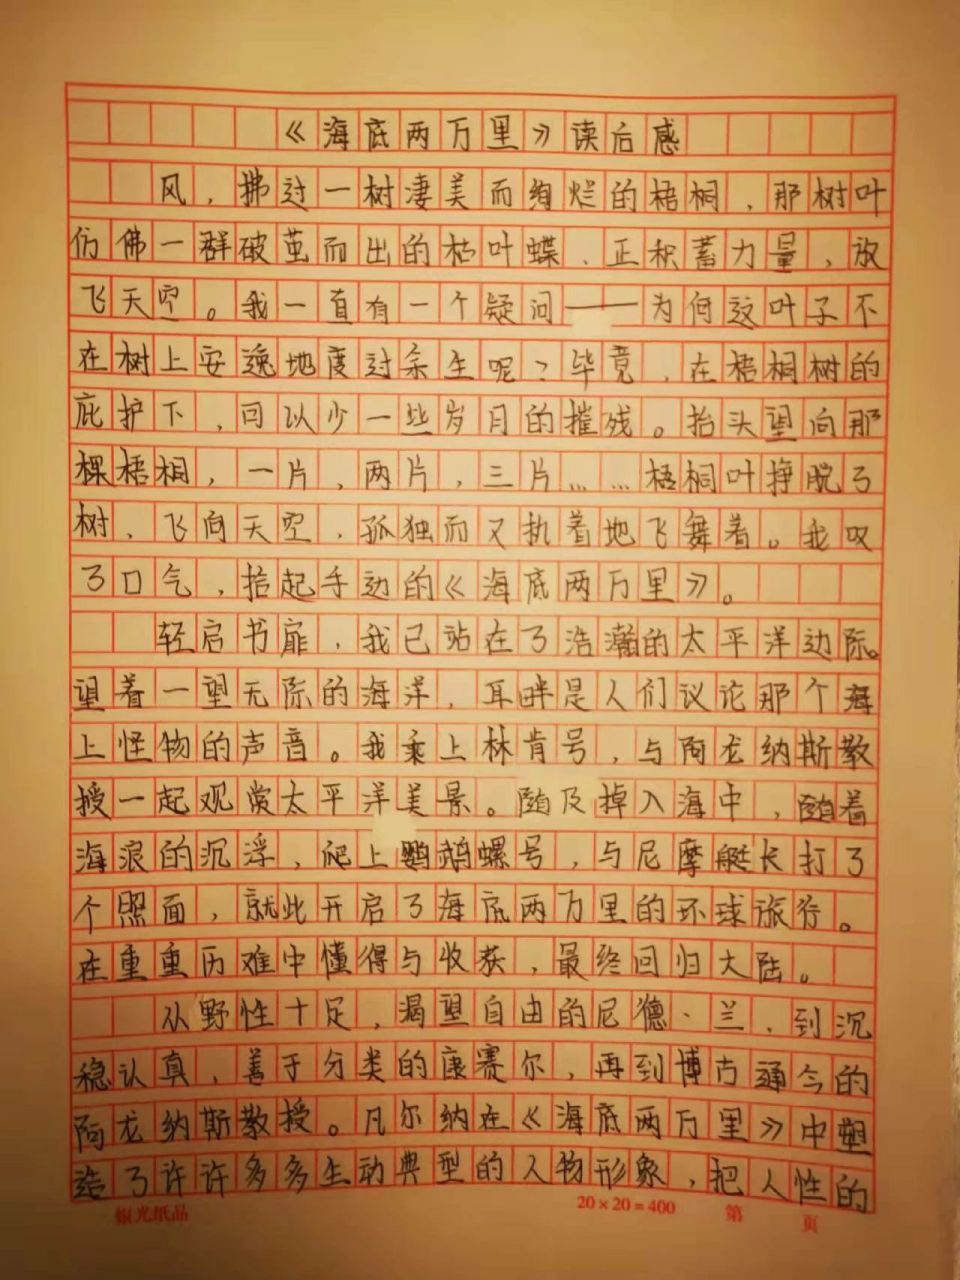 《海底两万里》读后感
风，拂过一树凄美而绚烂的梧桐，那树叶
仿佛一群破茧而出的枯叶蝶，正积蓄力量，放
飞天空。我一直有一个疑问——为何这叶子不
在树上安逸地度过余生呢？毕竟，在梧桐树的
庇护下，可以少一些岁月的摧残。抬头望向那
棵梧桐，一片，两片，三片……梧桐叶挣脱了
树，飞向天空，孤独而又执着地飞舞着。我叹
了口气，拾起手边的《海底两万里》。
轻启书扉，我已站在了浩瀚的太平洋边际。
望着一望无际的海洋，耳畔是人们议论那个海
上怪物的声音。我乘上林肯号，与阿龙纳斯教
授一起观赏太平洋美景。随及掉入海中，随着
海浪的沉浮，爬上鹦鹉螺号，与尼摩艇长打了
个照面，就此开启了海底两万里的环球旅行。
在重重历难中懂得与收获，最终回归大陆。
从野性十足，渴望自由的尼德·兰，到沉
稳认真，善于分类的康赛尔，再到博古通今的
阿龙纳斯教授。凡尔纳在《海底两万里》中塑
造了许许多多生动典型的人物形象，把人性的
银光纸品 20×20=400 第 页